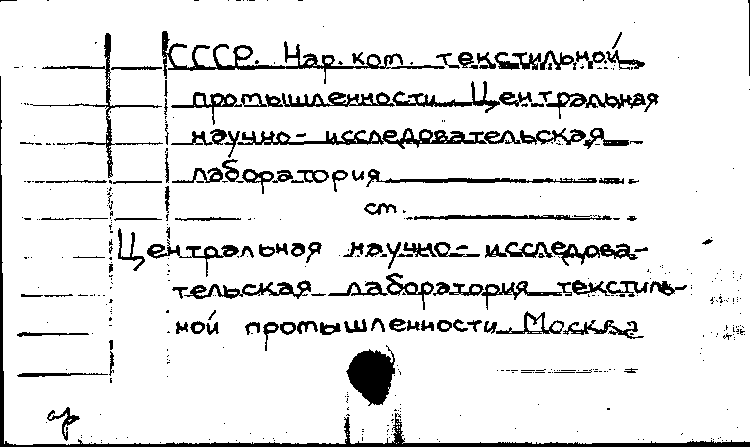 СССР. Нар. ком. текстильной
промышленности. Центральная
научно-исследовательская
лаборатория
см.
Центральная научно-исследова-
тельская лаборатория текстиль-
ной промышленности. Москва